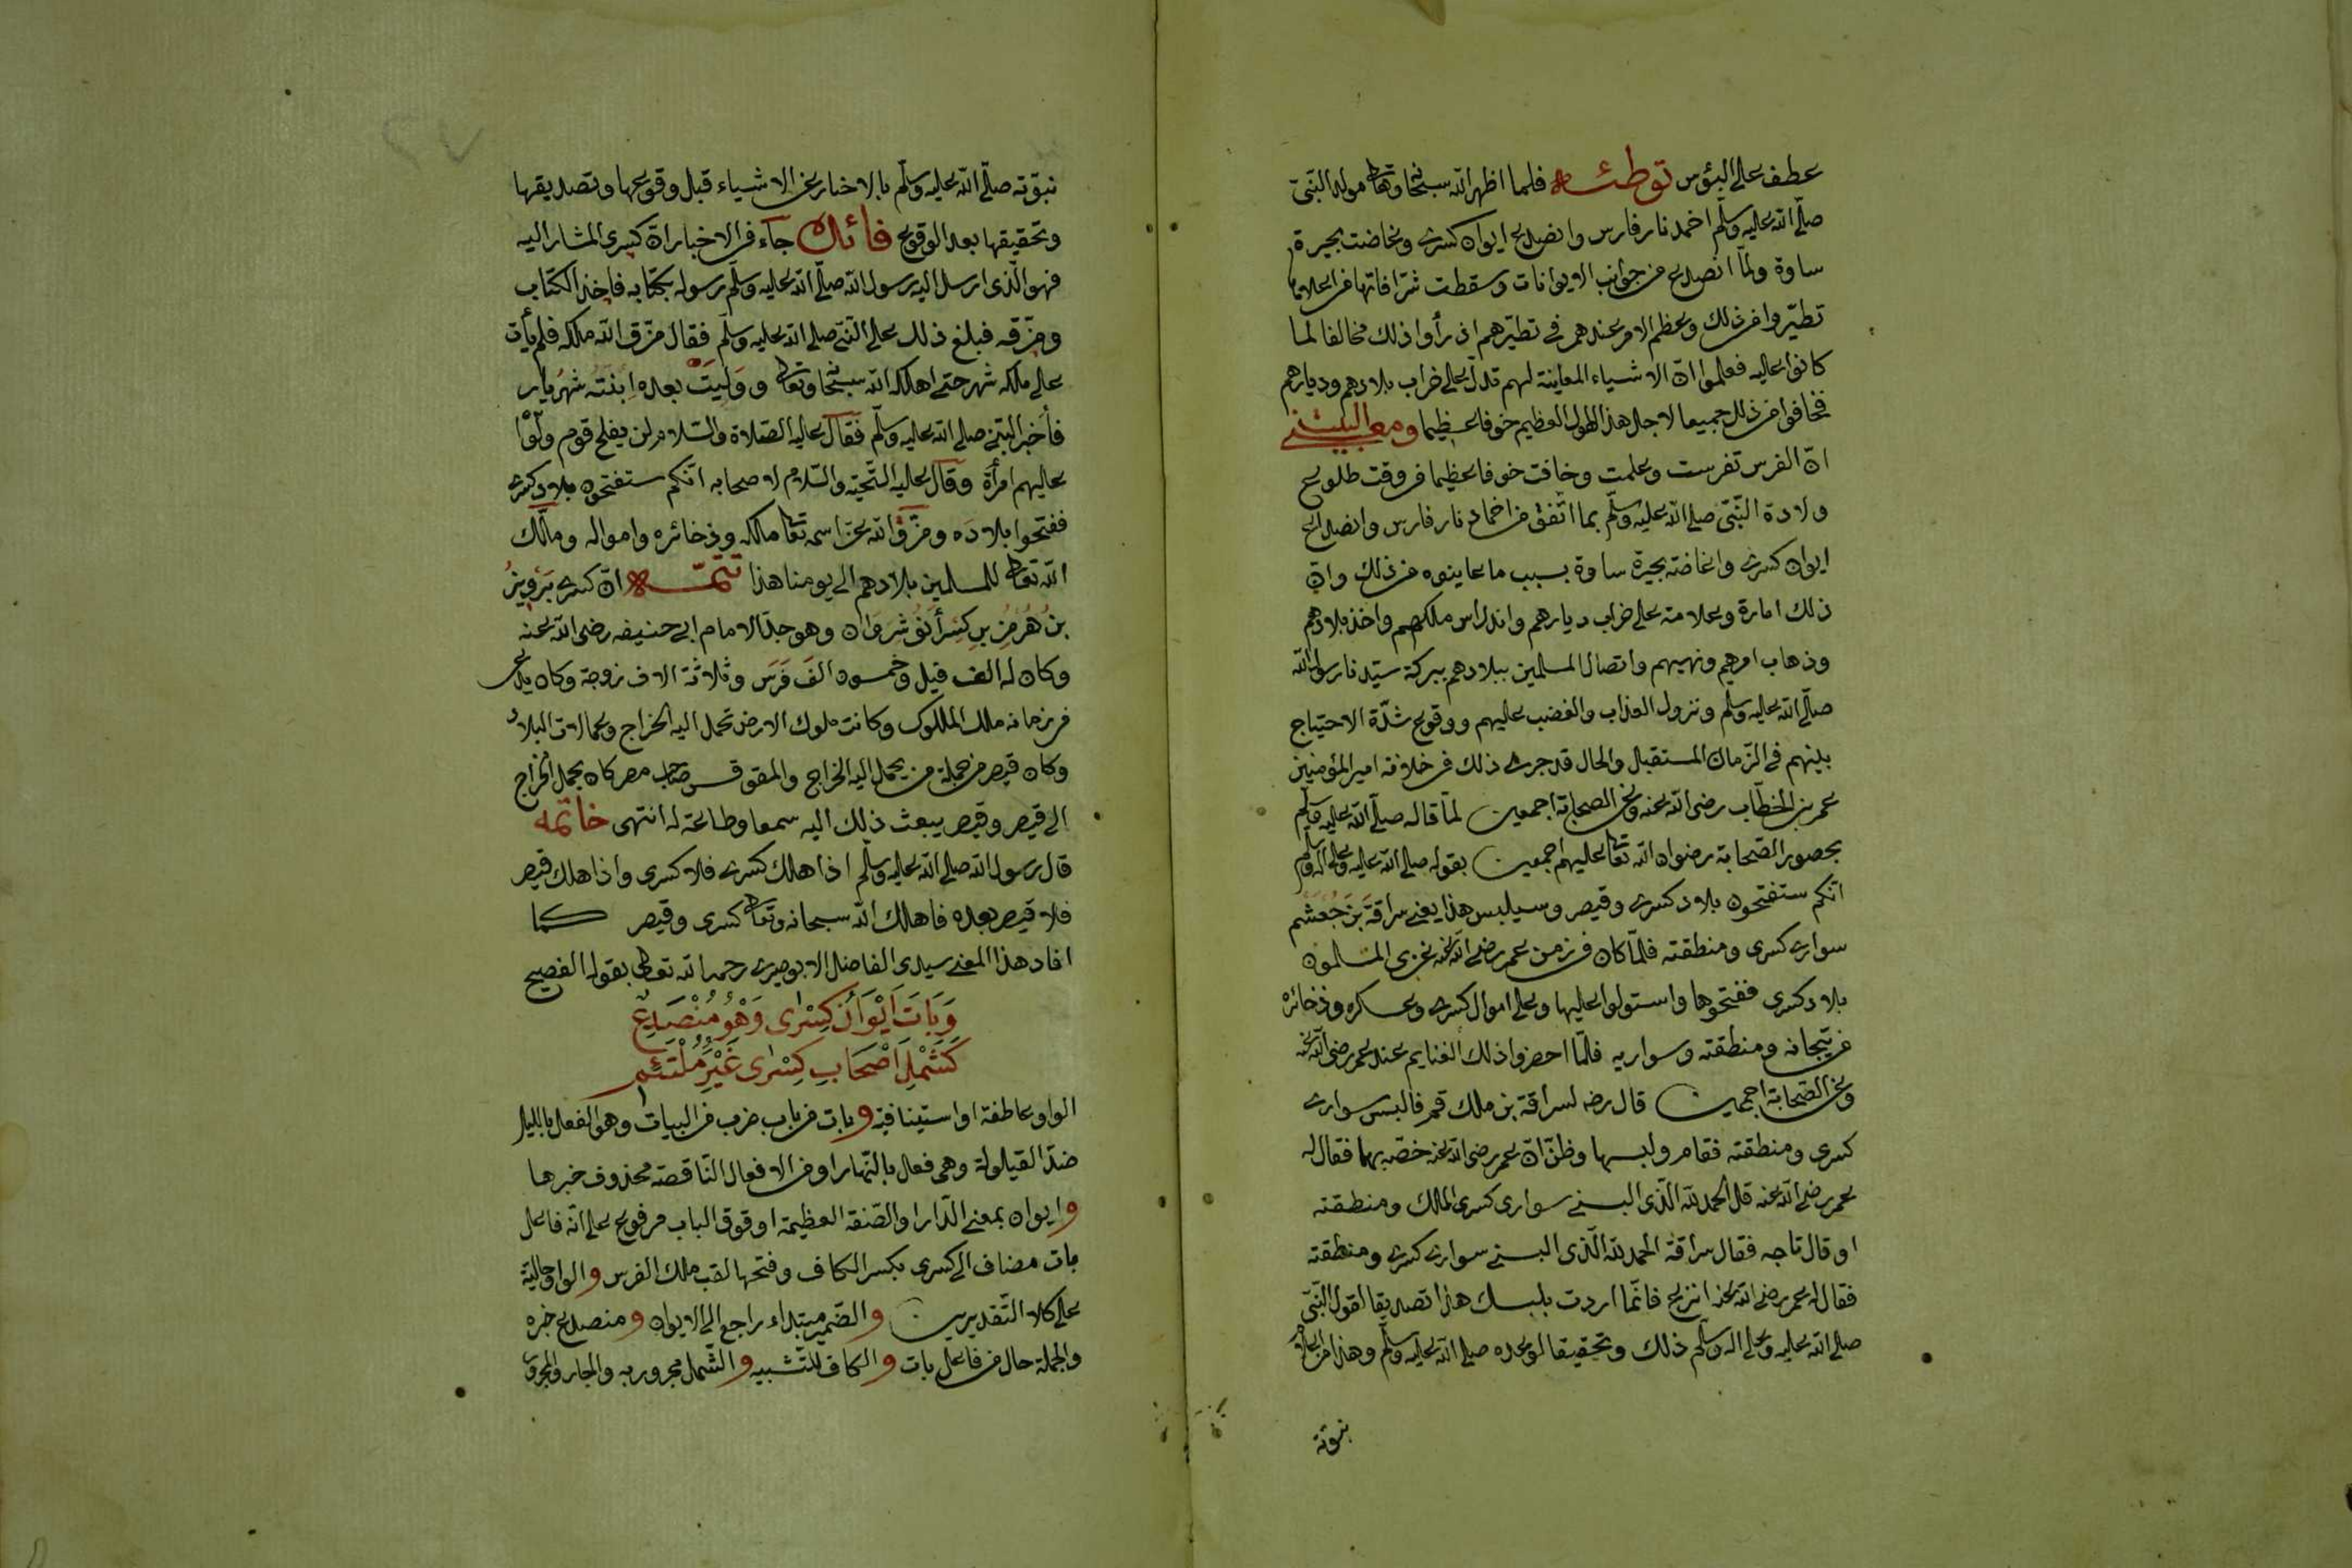 عطف على البؤس توطئه فلما اظهر الله سبحانه وتعالى مولد النبى
صلى الله عليه وسلم اخمد نار فارس وانصدع ايوان كسرى وغاضت بحيرة
ساوة ولما انصدع من جوانب الايوانات وسقطت شرافاتها من اعلاها
تطيروا من ذلك وعظم الامر عندهم فى تطيرهم اذ رأوا ذلك مخالفا لما
كانوا عليه فعلموا ان الاشياء المعاينة لهم تدل على خراب بلادهم وديارهم
فخافوا من ذلك جميعا لاجل هذا الهول العظيم خوفا عظيما ومعنى البيت
ان الفرس تفرست وعلمت وخافت خوفا عظيما فى وقت طلوع
ولادة النبى صلى الله عليه وسلم بما اتفق من اخماد نار فارس وانصداع
ايوان كسرى واغاضة بحيرة ساوة بسبب ما عاينوه من ذلك وان
ذلك امارة وعلامة على خراب ديارهم واندراس ملكهم واخذ بلادهم
وذهاب امرهم ونهيهم واتصال المسلمين ببلادهم ببركة سيدنا رسول الله
صلى الله عليه وسلم ونزول العذاب والغضب عليهم ووقوع شدة الاحتياج
بينهم فى الزمان المستقبل والحال قد جرى ذلك فى خلافة امير المؤمنين
عمر بن الخطاب رضى الله عنه وعن الصحابة اجمعين لما قاله صلى الله عليه وسلم
بحضور الصحابة رضوان الله تعالى عليهم اجمعين بقوله صلى الله عليه وعلى اله وسلم
انكم ستفتحون بلاد كسرى وقيصر وسيلبس هذا يعنى سراقة بن جعشم
سوارى كسرى ومنطقته فلما كان فى زمن عمر رضى الله عنه غزى المسلمون
بلاد كسرى ففتحوها واستولوا عليها وعلى اموال كسرى وعسكره وذخائره
من تيجانه ومنطقته وسواريه فلما احضروا ذلك الغنايم عند عمر رضى الله عنه
وعن الصحابة اجمعين قال رضه لسراقة بن ملك قم فالبس سوارى
كسرى ومنطقته فقام ولبسها وظن ان عمر رضى الله عنه خصه بهما فقال له
عمر رضى الله عنه قل الحمد لله الذى البسنى سوارى كسرى الملك ومنطقته
او قال تاجه فقال سراقة الحمد لله الذى البسنى سوارى كسرى ومنطقته
فقال له عمر رضى الله عنه انزع فانما اردت بلبسك هذا تصديقا لقول النبى
صلى الله عليه وعلى اله وسلم ذلك وتحقيقا لوعده صلى الله عليه وسلم وهذا من اعلام
نبوته
نبوته صلى الله عليه وسلم بالاخبار عن الاشياء قبل وقوعها وتصديقها
وتحقيقها بعد الوقوع فائدة جاء فى الاخبار ان كسرى المشار اليه
فهو الذى ارسل اليه رسول الله صلى الله عليه وسلم رسوله بكتابه فاخذ الكتاب
ومزقه فبلغ ذلك على النبى صلى الله عليه وسلم فقال مزق الله ملكه فلم يأت
على ملكه شهر حتى اهلكه الله سبحانه وتعالى ووليت بعده ابنته شهريار
فأخبر النبى صلى الله عليه وسلم فقال عليه الصلاة والسلام لن يفلح قوم ولوا
عليهم امرأة وقال عليه التحية والسلام لاصحابه انكم ستفتحون بلاد كسرى
ففتحوا بلاده ومزق الله عز اسمه تعالى ملكه وذخائره وامواله وملك
الله تعالى للمسلمين بلادهم الى يومنا هذا تتمه ان كسرى برويز
بن هرمز بن كسرأنوشروان وهو جد الامام ابى حنيفه رضى الله عنه
وكان له الف فيل وخمسون الف فرس وثلاثة الاف زوجة وكان يدعى
فى زمانه ملك الملوك وكانت ملوك الارض تحمل اليه الخراج وعمالات البلاد
وكان قيصر من جملة من يحمل اليه الخراج والمقوقس صاحب مصر كان يحمل الخراج
الى قيصر وقيصر يبعث ذلك اليه سمعا وطاعة له انتهى خاتمه
قال رسول الله صلى الله عليه وسلم اذا هلك كسرى فلا كسرى واذا هلك قيصر
فلا قيصر بعده فاهلك الله سبحانه وتعالى كسرى وقيصر كما
افاد هذا المعنى سيدى الفاضل الابوصيرى رحمه الله تعالى بقوله الفصيح
وَبَاتَ اَيْوَانُ كِسْرٰى وَهُوَ مُنْصَدِعٌ
كَشَمْلِ اَصْحَابِ كِسْرٰى غَيْرَ مُلْتَئِمِ
الواو عاطفة او استينافية وبات من باب ضرب من البيات وهو الفعل بالليل
ضد القيلولة وهى فعل بالنهار او من الافعال الناقصة محذوف خبرها
وايوان بمعنى الدار او الصفة العظيمة او قوق الباب مرفوع على انه فاعل
بات مضاف الى كسرى بكسر الكاف وفتحها لقب ملك الفرس والواو حالية
على كلا التقديرين والضمير مبتداء راجع الى الايوان ومنصدع خبره
والجملة حال من فاعل بات والكاف للتشبيه والشمل مجرور به والجار والمجرور